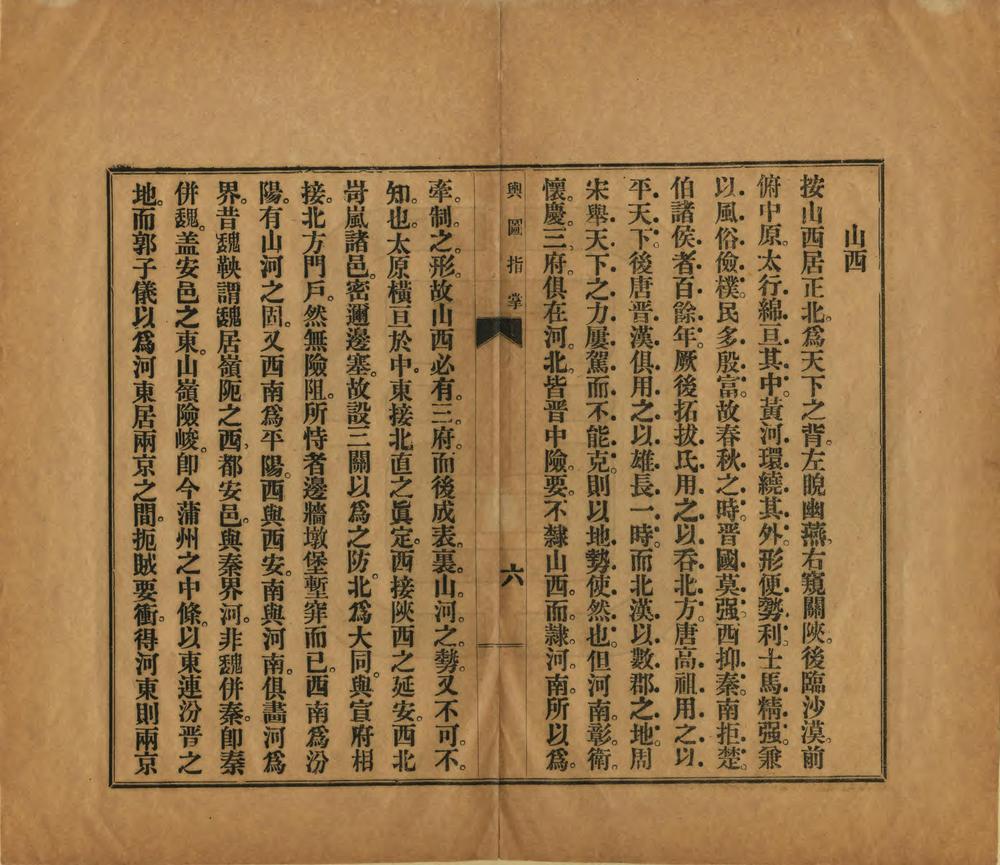 山西
按山西居正北。爲天下之背。左睨幽燕。右窺關陝。後臨沙漠。前
俯中原。太行綿亘其中。黃河環繞其外。形便勢利。士馬精强。兼
以風俗儉樸。民多殷富。故春秋之時。晉國莫强。西抑秦。南拒楚。
伯諸侯者百餘年。厥後拓拔氏用之以吞北方。唐高祖用之以
平天下。後唐晉漢俱用之以雄長一時。而北漢以數郡之地。周
宋舉天下之力。屢駕而不能克。則以地勢使然也。但河南彰衛
懷慶三府。俱在河北。皆晉中險要。不隸山西。而隸河南。所以爲
輿圖指掌
六
牽制之形。故山西必有三府。而後成表裏山河之勢。又不可不
知也。太原橫亘於中。東接北直之眞定。西接陝西之延安。西北
岢嵐諸邑。密邇邊塞。故設三關以爲之防。北爲大同。與宣府相
接。北方門戶。然無險阻。所恃者邊牆墩堡塹穽而已。西南爲汾
陽。有山河之固。又西南爲平陽。西與西安。南與河南。俱畫河爲
界。昔魏鞅謂魏居嶺阨之西、都安邑。與秦界河。非魏併秦。卽秦
併魏。盖安邑之東。山嶺險峻。卽今蒲州之中條。以東連汾晉之
地。而郭子儀以爲河東居兩京之間。扼賊要衝。得河東則兩京